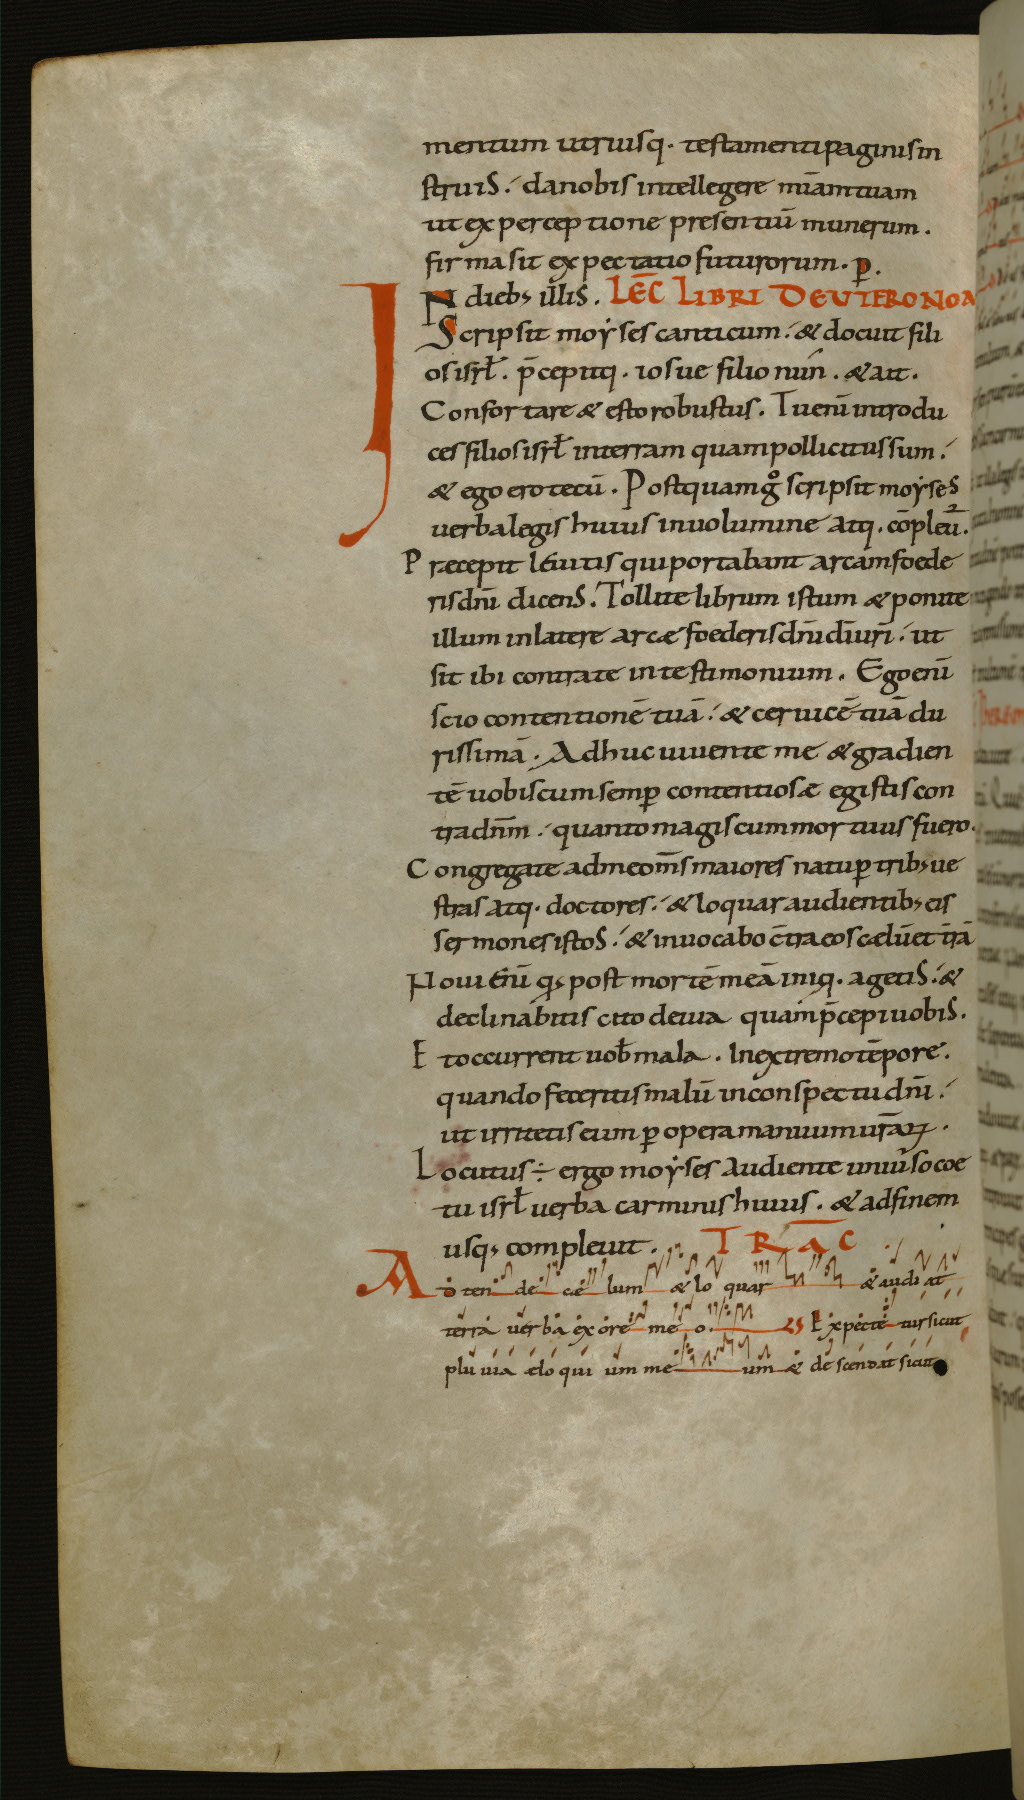 mentum utriusq· testamenti paginis in
struis. da nobis intellegere miāmtuam
ut ex perceptione presentiū munerum.
firma sit expectatio futurorum. p̄.
IN dieb; ıll̄is. LEC̄ LIBRI DEUTERONOM
Scripsit moẏses canticum. & docuit fili
os isrl̄. p̄cepitq· iosue filio nun. & ait.
Confortare & esto robustus. Tu eni introdu
ces filios isrl̄ in terram quam pollicitus sum.
& ego ero tecū. Postquam g̊ scripsit moẏses
uerba legis huius in uolumine atq· cōpleu̅.
Præcepit leuitis qui portabant arcam foede
ris dn̄i dicens. Tollite librum istum & ponite
illum in latere arcæ foederis dn̄i dī ur̄i. ut
sit ibi contra te in testimonium. Ego enī
scio contentionē tuā. & ceruicē tuā du
rissimā. Adhuc uiuente me & gradien
tē uobiscum semp̄ contentiosæ egistis con
tra dn̄m. quanto magis cum mortuus fuero.
Congregate ad me om̄s maiores natu p̄ trib; ue
stras atq· doctores. & loquar audientib; eis
sermones istos. & inuocabo c̄tra eos cælū et t̄rā
Noui enī q̄; post mortē meā iniq· agetis. &
declinabitis cito de uia quam p̄cepi uobis.
Et occurrent uob̄ mala. In extremo tēpore.
quando feceritis malū in conspectu dn̄i.
ut irritetis eum p̄ opera manuum ur̄aꝝ.
Locutus ÷ ergo moẏses audiente uniu̅so coe
tu isrl̄ uerba carminis huius. & ad finem
usq; compleuit. TRĀC
Adten de cæ lum & lo quar & audi at
terra uerba ex ore me o. Expecte tur sicut
plu uia elo qui um me um & descendat sicut